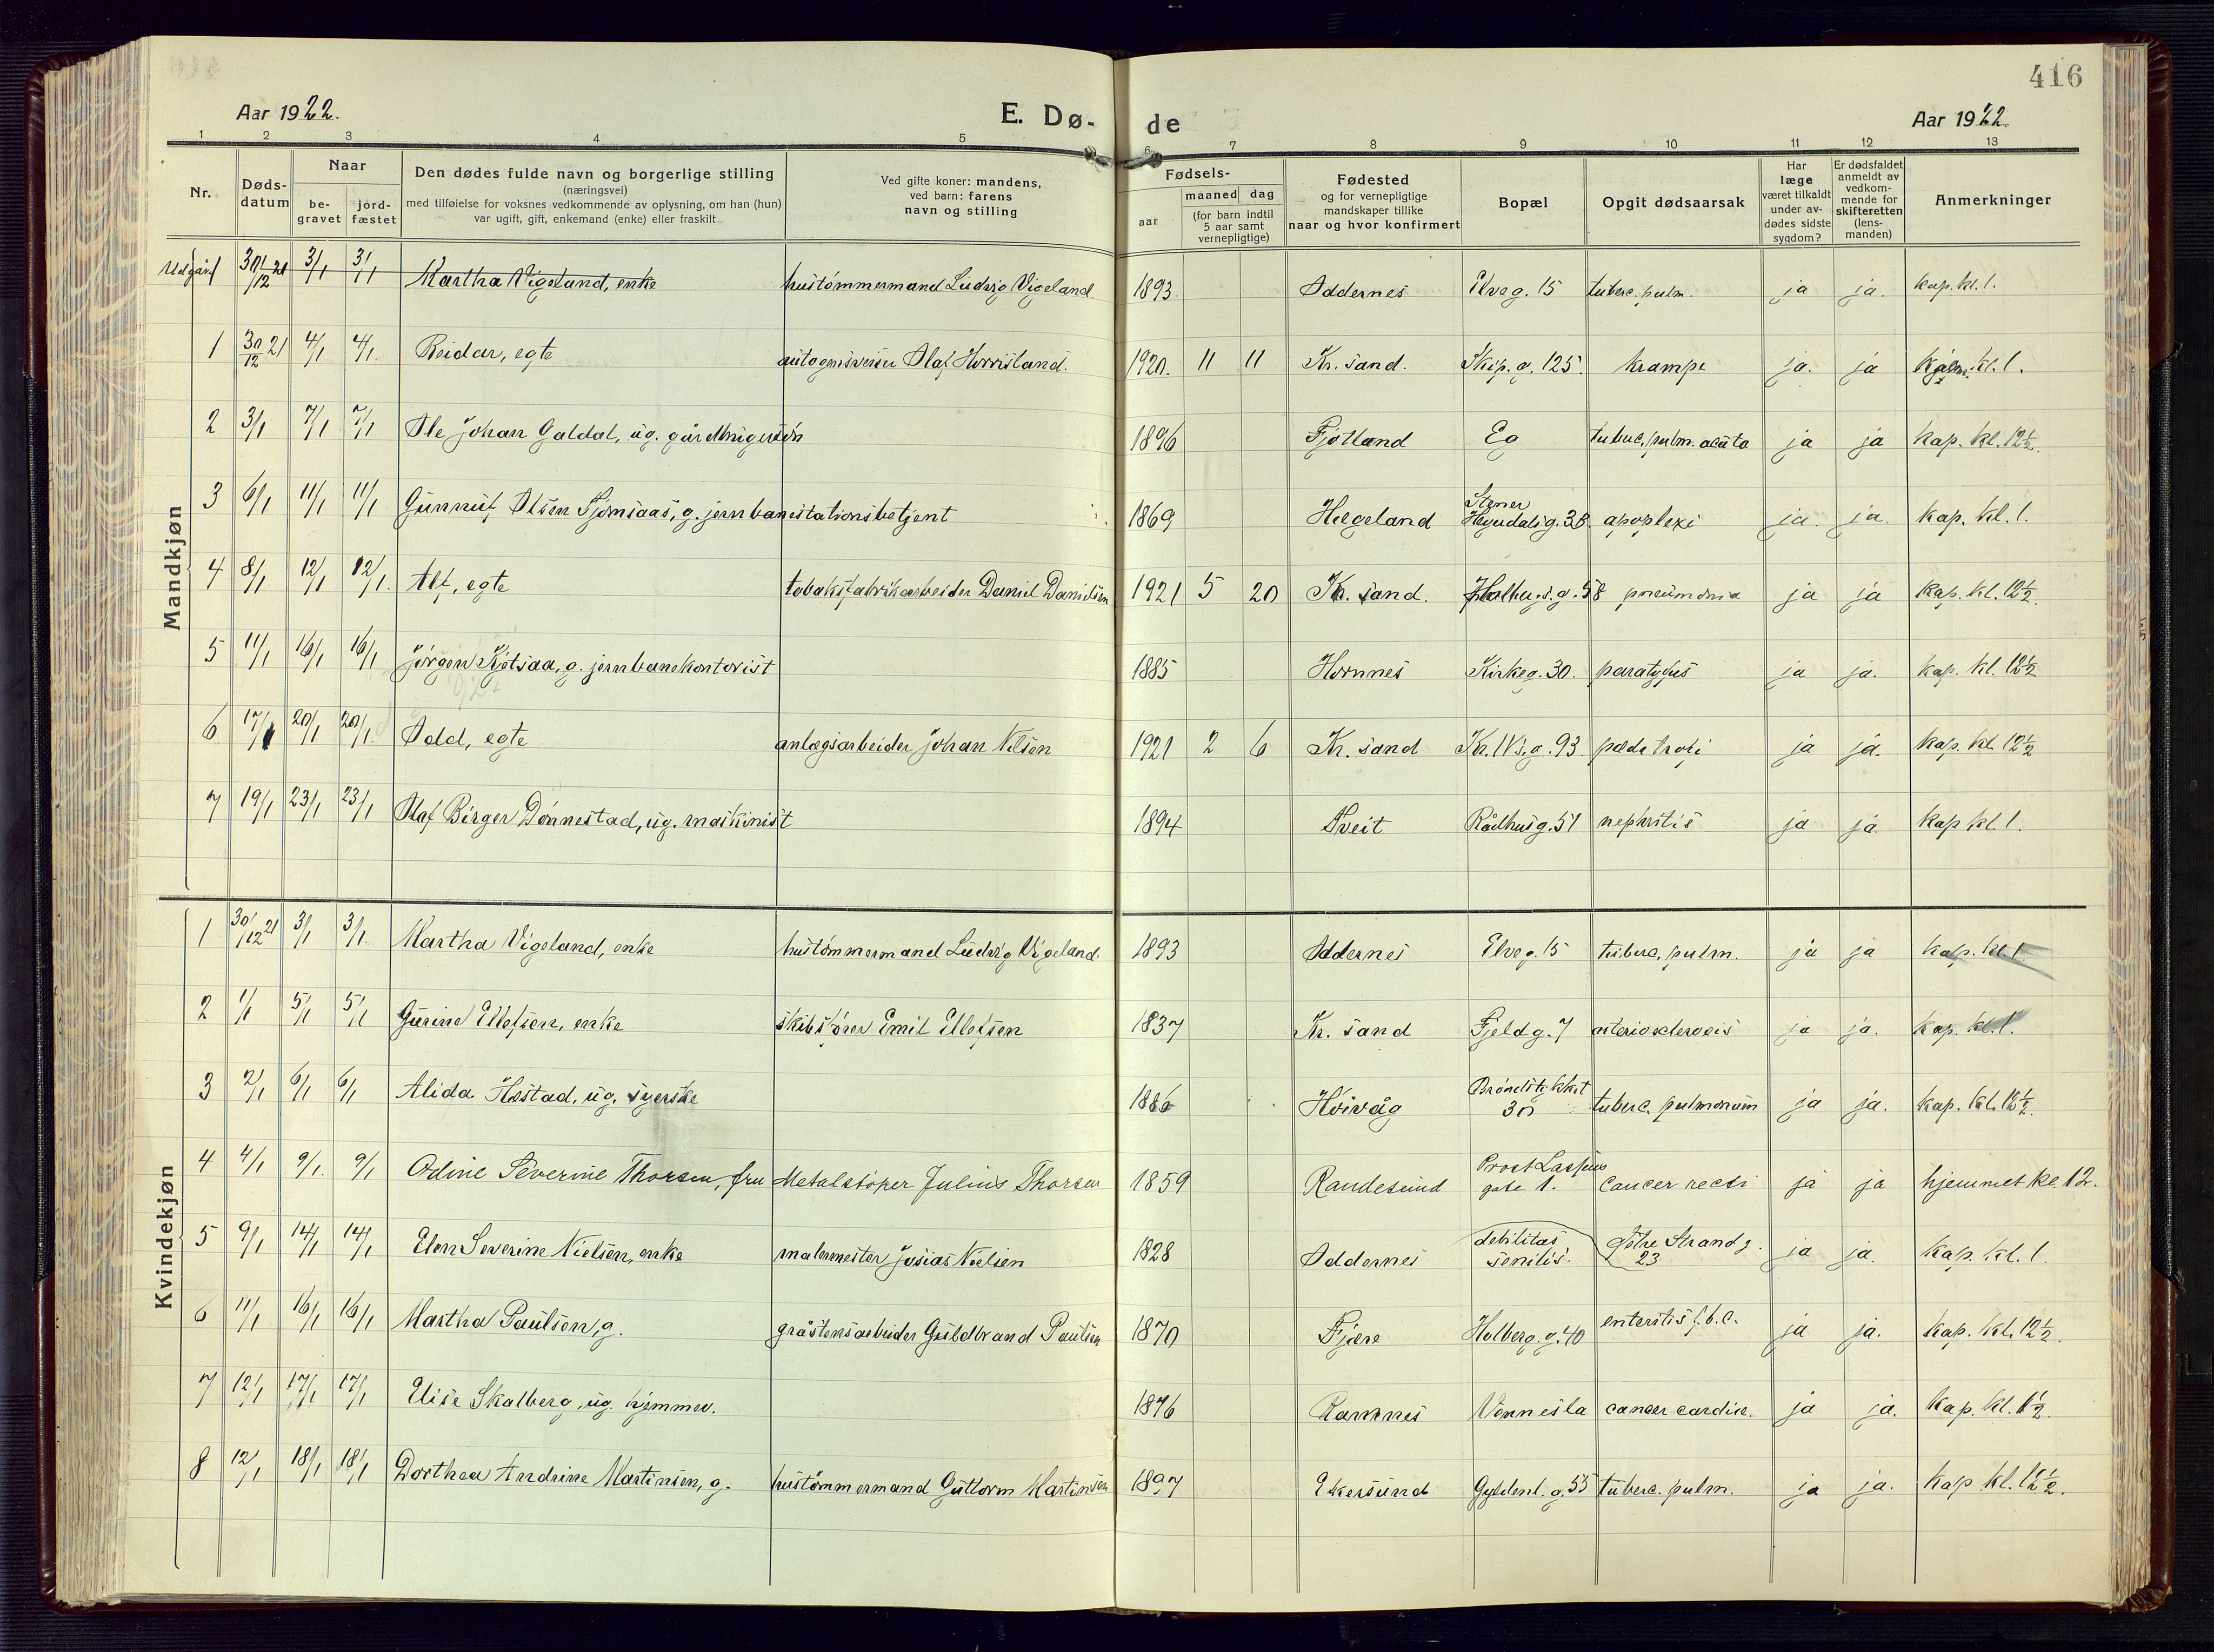 416
Aar 1922.
E. Dø-
de
Aar 1922.
1 2 3 4 5 6 7 8 9 10 11 12 13
Nr.
Døds-
datum
Naar
be-
gravet
jord-
fæstet
Den dødes fulde navn og borgerlige stilling
(næringsvei)
med tilføielse for voksnes vedkommende av oplysning, om han (hun)
var ugift, gift, enkemand (enke) eller fraskilt
Ved gifte koner: mandens,
ved barn: farens
navn og stilling
Fødsels-
aar
maaned dag
(for barn indtil
5 aar samt
vernepligtige)
Fødested
og for vernepligtige
mandskaper tillike
naar og hvor konfirmert
Bopæl
Opgit dødsaarsak
Har
læge
været tilkaldt
under av-
dødes sidste
sygdom?
Er dødsfaldet
anmeldt av
vedkom-
mende for
skifteretten
(lens-
manden)
Anmerkninger
Mandkjøn
Udgår 30/12 21 3/1 3/1 Martha Vigeland, enke hustømmermand Ludvig Vigeland. 1893 Oddernes Elveg. 15 tuberc. pulm. ja ja. kap. kl. 1.
1 30/12 21 4/1 4/1. Reidar, egte autogensveiser Olaf Horrisland. 1920. 11 11 Kr. sand. Skip. g. 125. krampe ja. ja kl. 1.
2 3/1 7/1 7/1 Ole Johan Galdal, ug. gårdbrugersøn 1896 Fjotland Eg tuberc. pulm. acuta ja ja kap. kl. 12½.
3 6/1 11/1 11/1 Gunnuf Olsen Sjømsaas, g. jernbanestationsbetjent 1869 Hægeland Stener Heyerdalsg. 38 apoplexi ja. ja. kap. kl. 1.
4 8/1 12/1 12/1. Alf, egte tobaksfabrikarbeider Daniel Danielsen 1921 5 20 Kr. sand. g. 58 pneumonia ja ja kap. kl. 12½.
5 11/1 16/1 16/1 Jørgen Kjetsaa, g. jernbanekontorist 1885 Hornnes Kirkeg. 30. paratyfus ja ja. kap. kl. 12½
6 17/1 20/1 20/1. Odd, egte anlægsarbeider Johan Nilsen 1921 2 6 Kr. sand Kr. IVs. g. 93 pædatrofi ja ja. kap. kl. 12½
7 19/1 23/1 23/1 Olaf Birger Dønnestad, ug. maskinist 1894 Tveit Rådhusg. 51 nephritis ja ja. kap kl. 1.
Kvindekjøn
1 30/12 21 3/1 3/1. Martha Vigeland, enke hustømmermand Ludvig Vigeland. 1893 Oddernes Elveg. 15 tuberc. pulm. ja ja kap. kl. 1
2 1/1 5/1 5/1 Gurine Ellefsen, enke skibsfører Emil Ellefsen 1837 Kr. sand Fjeldg. 7 arteriosclerosis ja ja. kap. kl. 1.
3 2/1 6/1 6/1 Alida Hæstad, ug. syerske 1886 Høivåg 30 tuberc. pulmonum ja ja. kap. kl. 12½.
4 4/1 9/1. 9/1 Odine Severine Thorsen, fru Metalstøper Julius Thorsen 1859 Randesund Prost Lassens gate 1. Cancer recti ja ja hjemmet kl. 12.
5 9/1 14/1 14/1 Elen Severine Nielsen, enke malermester Josias Nielsen 1828 Oddernes debilitas senilis. Østre Strandg. 23 ja ja. kap. kl. 1.
6 11/1 16/1 16/1 Martha Paulsen, g. gråstensarbeider Guldbrand Paulsen 1870 Fjære Holberg. g. 40 enteritis t. b. c. ja ja. kap. kl. 12½.
7 12/1 17/1 17/1 Elise Skalberg, ug. hjemmev. 1876 Ramnes Vennesla cancer cardiæ. ja ja. kap. kl. 1½.
8 12/1 18/1 18/1 Dorthea Andrine Martinsen, g. hustømmermand Guttorm Martinsen 1897 Ekersund Gyldenl. g. 55 tuberc. pulm. ja ja. kap kl. 12½.